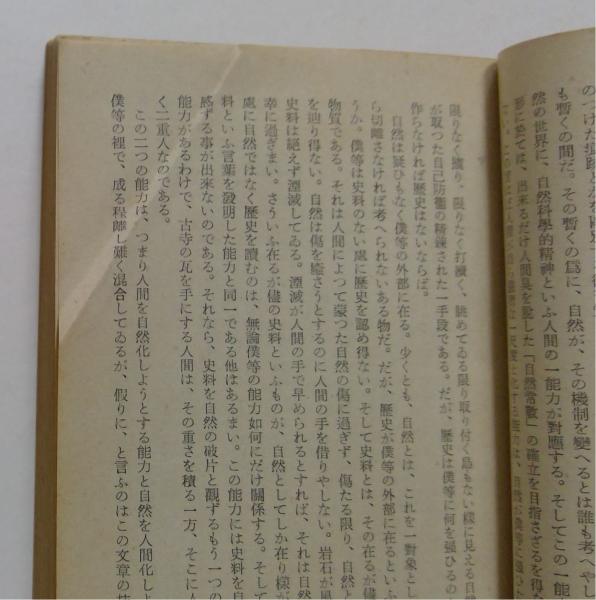 のつけた
も暫くの間だ。その暫くの爲に、自然が、その機制を變へるとは誰も考へやし
然の世界に、自然科學的精神といふ人間の一能力が對應する。そしてこの一能
形に於ては、出來るだけ人間臭を脱した「自然常數」の確立を目指さざるを得な
限りなく擴り、限りなく打續く、眺めてゐる限り取付く島もない樣に見える自然
が取つた自己防衞の精錬された一手段である。だが、歷史は僕等に何を强ひるの
作らなければ歷史はないならば。
自然は疑ひもなく僕等の外部に在る。少くとも、自然とは、これを一對象とし
ら切離さなければ考へられないある物だ。だが、歷史が僕等の外部に在るといふ
うか。僕等は史料のない處に歷史を認め得ない。そして史料とは、その在るが儘
物質である。それは人間によつて蒙つた自然の傷に過ぎず、傷たる限り、自然と
を辿り得ない。自然は傷を癒さうとするのに人間の手を借りやしない。岩石が風
史料は絕えず湮滅してゐる。湮滅が人間の手で早められるとすれば、それは自然
幸に過ぎまい。さういふ在るが儘の史料といふものが、自然としてしか在り樣が
處に自然ではなく歷史を讀むのは、無論僕等の能力如何にだけ關係する。そして
料といふ言葉を發明した能力と同一である他はあるまい。この能力には史料を自
感ずる事が出來ないのである。それなら、史料を自然の破片と觀ずるもう一つの
能力があるわけで、古寺の瓦を手にする人間は、その重さを積る一方、そこに人
く二重人なのである。
この二つの能力は、つまり人間を自然化しようとする能力と自然を人間化しよ
僕等の裡で、成る程離し難く混合してゐるが、假りに、と言ふのはこの文章の